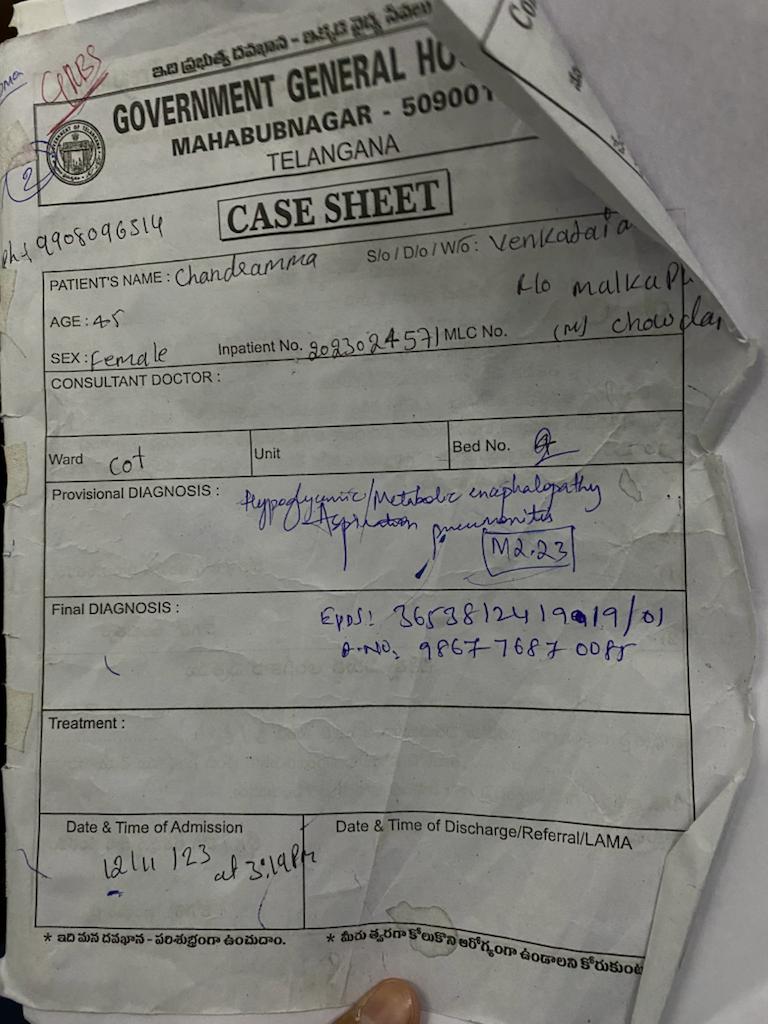 ఇది ప్రభుత్వ దవఖాన - ఇక్కడ వైద్య సేవలు
GRBS
GOVERNMENT GENERAL HO
MAHABUBNAGAR - 509001
TELANGANA
2
CASE SHEET
ph: 9908096514
PATIENT'S NAME : Chandramma S/o / D/o / W/o : Venkataia
R/o malkap
AGE : 45
(M) chowdar
SEX : Female Inpatient No. 2023024571 MLC No.
CONSULTANT DOCTOR :
Ward cot Unit Bed No.
Provisional DIAGNOSIS : Hypoglycemic/Metabolic encephalopathy
Aspiration pneumonitis
M2.23
Final DIAGNOSIS :
A.NO. 9867 7687 0085
Treatment :
Date & Time of Admission Date & Time of Discharge/Referral/LAMA
12/11/23 at 3:19 PM
* ఇది మన దవఖాన - పరిశుభ్రంగా ఉంచుదాం. * మీరు త్వరగా కోలుకొని ఆరోగ్యంగా ఉండాలని కోరుకుంట